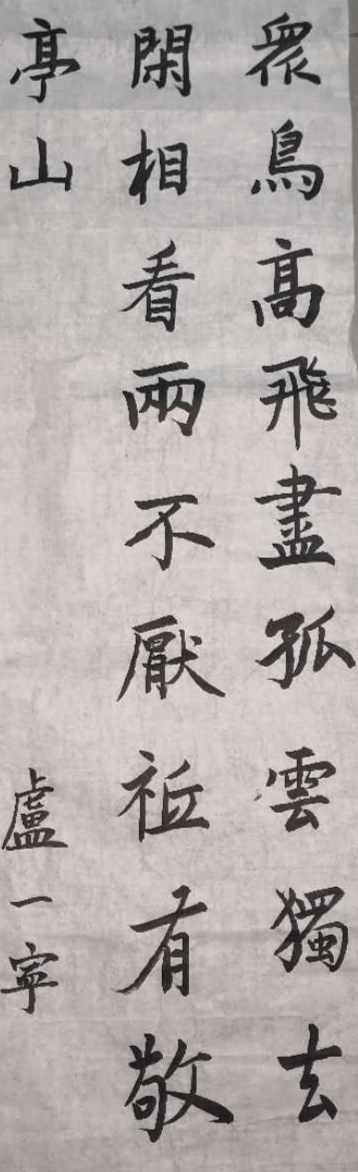 眾鳥高飛盡孤雲獨去
閑相看兩不厭祗有敬
亭山
盧一寧